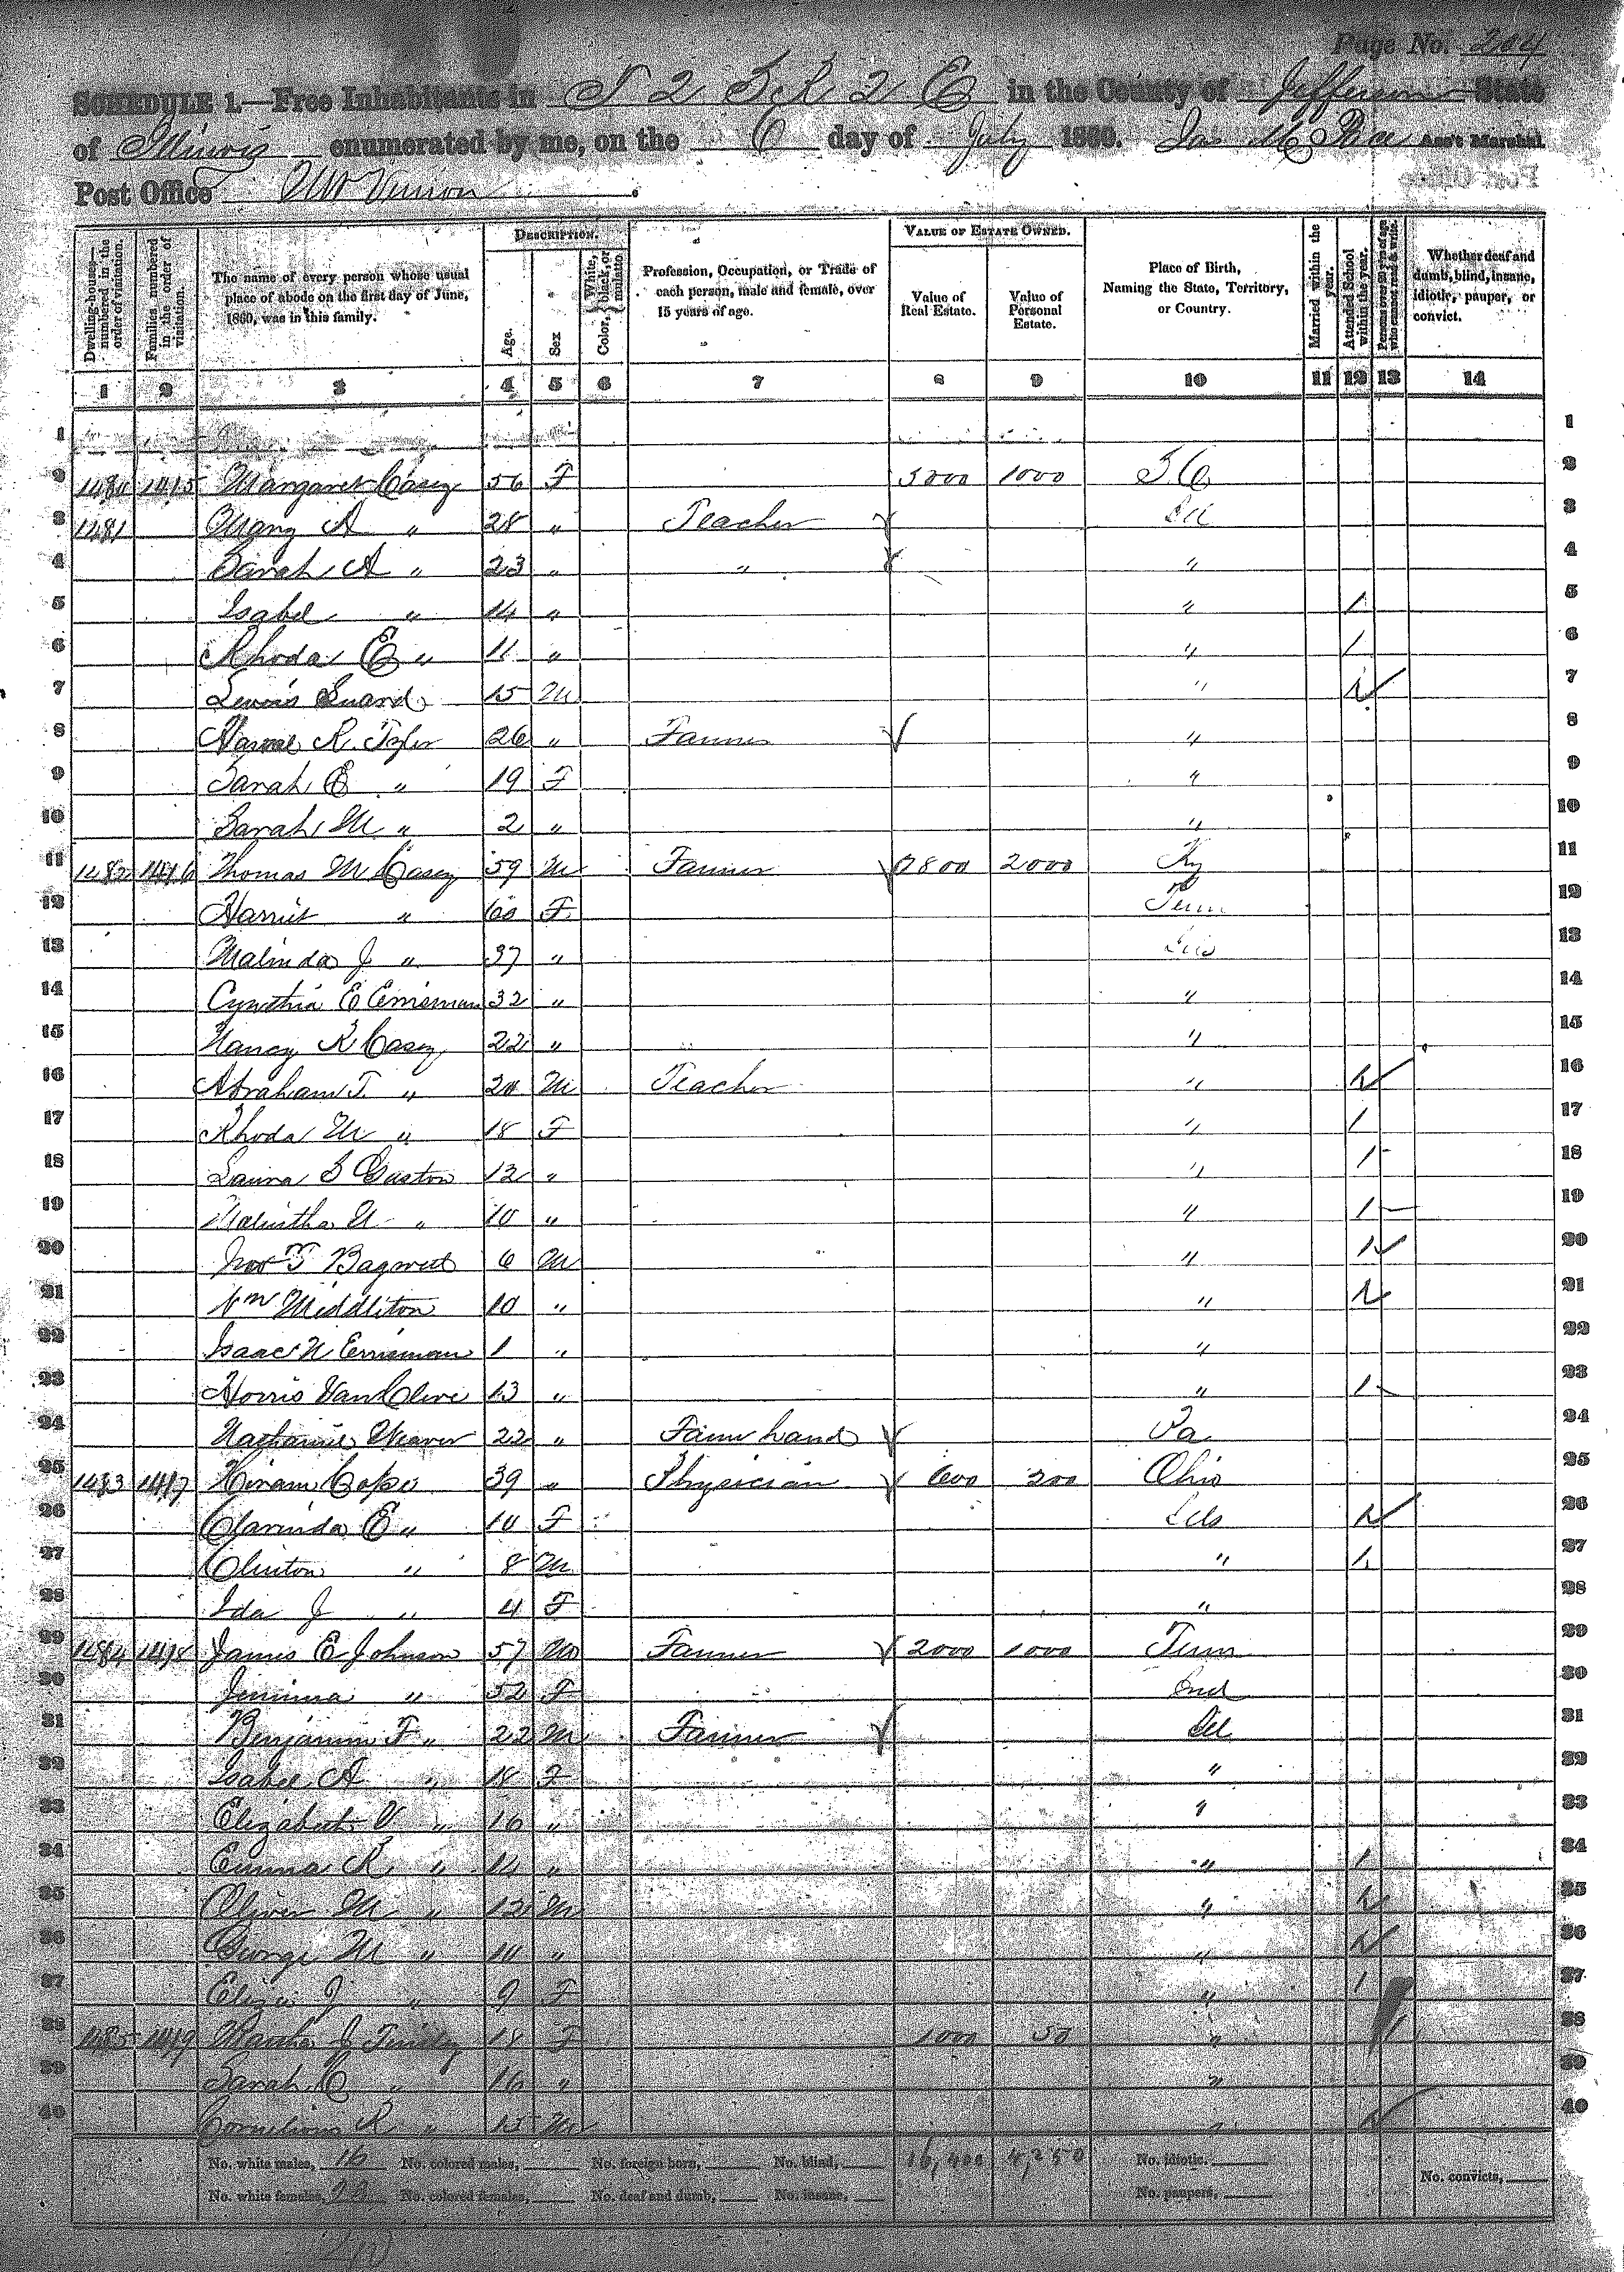 Page No. 204
SCHEDULE 1.—Free Inhabitants in T 2 S R 2 E in the County of Jefferson State
of Illinois enumerated by me, on the 6 day of July 1860. Ass't Marshal
Post Office Mt Vernon.
DESCRIPTION. VALUE OF ESTATE OWNED.
Dwelling-houses—numbered in the order of visitation. Families numbered in the order of visitation. The name of every person whose usual place of abode on the first day of June, 1860, was in this family. Age. Sex Color, White, black, or mulatto. Profession, Occupation, or Trade of each person, male and female, over 15 years of age. Value of Real Estate. Value of Personal Estate. Place of Birth, Naming the State, Territory, or Country. Married within the year. Attended School within the year. Persons over 20 y'rs of age who cannot read & write. Whether deaf and dumb, blind, insane, idiotic, pauper, or convict.
1 2 3 4 5 6 7 8 9 10 11 12 13 14
1 1
2 1480 1415 Margaret Casey 56 F 1000 S C 2
3 1481 Mary A " 28 " Teacher Ill 3
4 Sarah A " 23 " " " 4
5 Isabel " 14 " " 1 5
6 Rhoda E " 11 " " 1 6
7 Lewis 15 M " 1 7
8 R. Tyler 26 " Farmer " 8
9 Sarah E " 19 F " 9
10 Sarah M " 2 " " 10
11 1482 1416 Thomas M Casey 59 M Farmer 7800 2000 Ky 11
12 Harriet " 60 F Tenn 12
13 Malinda J " 37 " Ills 13
14 Cynthia E 32 " " 14
15 Nancy K Casey 22 " " 15
16 Abraham T. " 20 M Teacher " 1 16
17 Rhoda M " 18 F " 1 17
18 Laura S Gaston 12 " " 1 18
19 " 10 " " 1 19
20 T Bagwell 6 M " 1 20
21 Wm Middliton 10 " " 1 21
22 Isaac N 1 " " 22
23 Horris 13 " " 1 23
24 Nathaniel Weaver 22 " Farm hand Pa 24
25 1483 1417 Hiram Cope 39 " Physician 600 200 Ohio 25
26 Clarinda E " 10 F Ills 1 26
27 Clinton " 8 M " 1 27
28 Ida J " 4 F " 28
29 1484 1418 James E Johnson 57 M Farmer 2000 1000 Tenn 29
30 Jemima " 52 F Ind 30
31 Benjamin F " 22 M Farmer Ill 31
32 Isabel A " 18 F " 32
33 Elizabeth V " 16 " " 33
34 Emma K " 14 " " 1 34
35 Oliver M " 12 M " 1 35
36 George M " " " 1 36
37 Eliza J " 9 F " 1 37
38 1485 1419 Martha J 18 F 1000 50 " 38
39 Sarah C " 16 " " 39
40 Cornelious R " 15 M " 1 40
No. white males, 16 No. colored males, No. foreign born, No. blind, 16,400 4,250 No. idiotic. No. convicts,
No. white females, 23 No. colored females, No. deaf and dumb, No. insane, No. paupers,